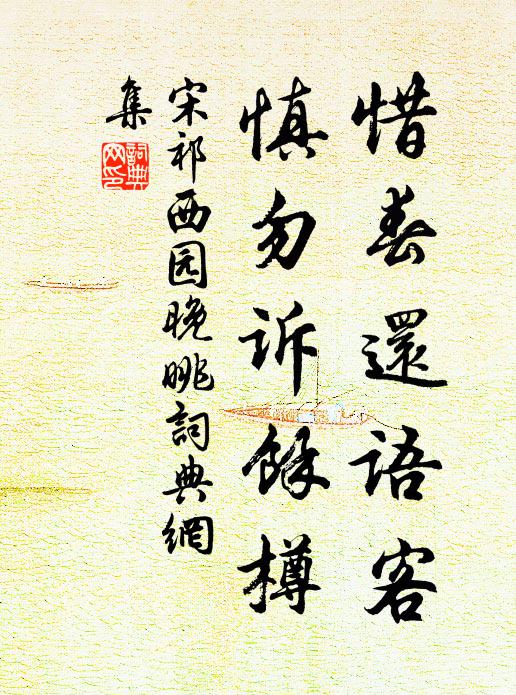 惜春還語客
慎勿訴餘樽
宋祁西园晚眺詞典網
集
詞典
网印